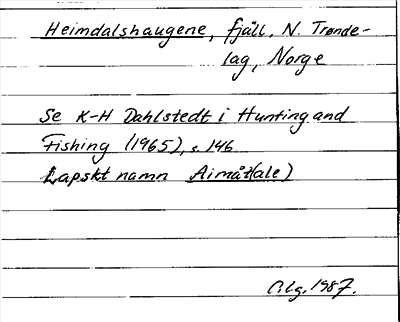 Heimdalshaugene, fjäll, N. Trønde-
lag, Norge
Se K-H Dahlstedt i Hunting and
Fishing (1965), s. 146
Lapskt namn Aimåt(ale)
Alg. 1987.